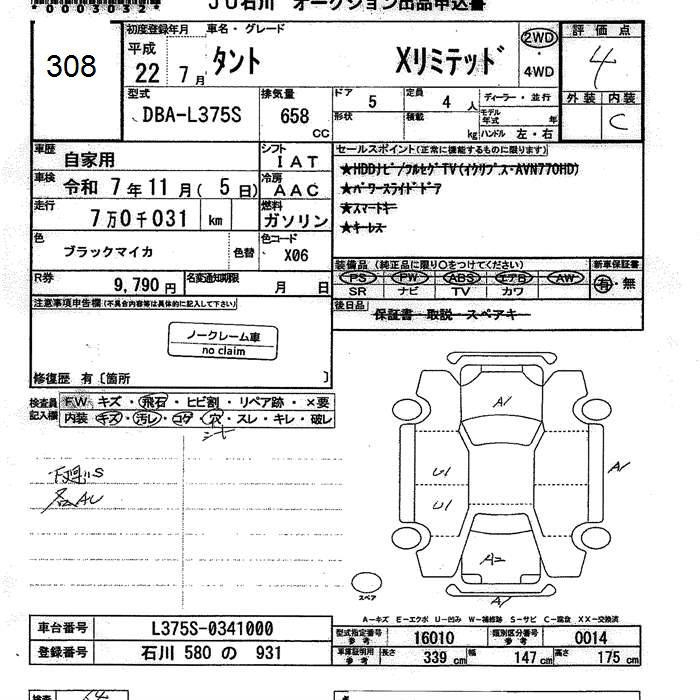 *0003032*
JU石川 オークション出品申込書
308
初度登録年月 車名・グレード
平成 22年 7月
タント Xリミテッド
2WD・4WD
評価点
4
外装 内装
C
型式 DBA-L375S
排気量 658 CC
ドア 5
形状
定員 4人
積載 kg
ディーラー・並行
モデル年式 年
ハンドル 左・右
車歴 自家用
シフト IAT
車検 令和 7年 11月( 5日)
冷房 AAC
走行 7万0千031 km
燃料 ガソリン
色 ブラックマイカ 色替
色コード X06
R券 9,790円
名変通知期限 月 日
セールスポイント(正常に機能するものに限ります)
★HDDナビ/フルセグTV(イクリプス・AVN770HD)
★パワースライドドア
★スマートキー
★キーレス
装備品 (純正品に限り〇をつけてください)
新車保証書
PS PW ABS エアB AW
SR ナビ TV カワ
有・無
後日品
保証書・取説・スペアキー
注意事項申告欄(不具合内容等は具体的に記入して下さい)
ノークレーム車
no claim
修復歴 有〔箇所 〕
検査員記入欄
FW キズ・飛石・ヒビ割・リペア跡・×要
内装 キズ・汚レ・コゲ・穴・スレ・キレ・破レ
シート
下廻りS
各AU
A1
U1
U1
A1
A2
A1
スペア
A-キズ E-エクボ U-凹み W-補修跡 S-サビ C-腐食 XX-交換済
車台番号 L375S-0341000
登録番号 石川 580 の 931
型式指定番号 参考 16010
類別区分番号 参考 0014
車庫証明用 参考 長さ 339cm 幅 147cm 高さ 175cm
検査